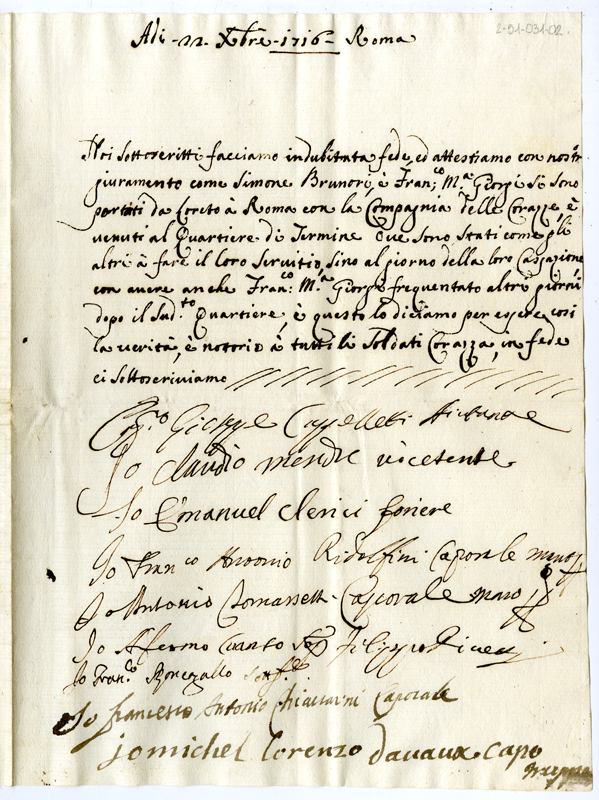 2-91-031-02.
Adi - 22 - Xbre - 1716 - Roma
Noi sottoscritti facciamo indubitata fede, ed attestiamo con nostro
giuramento come Simone Brunori, è Fran:co M.a Giorgi si sono
portati da Loreto à Roma con la Compagnia delle Corazze, è
venuti al Quartiere di Termine Ove sono stati come gli
altri à fare il loro Servitio, sino al giorno della loro Cassazione
con avere anche Fran:co M.a Giorgi frequentato altri giorni
dopo il Sud.to Quartiere, è questo lo diciamo per essere così
la verità, è notorio à tutti li Soldati Corazza, in fede
ci sottoscriviamo
Giuseppe Cappelletti
Io Claudio mendre vicetente
Io Emanuel Clerici foriere
Io Franco Antonio Ridolfini Caporale
Io Antonio Tomassetti Caporale
Io Afermo quanto Filippo
Io Fran.co
Io francesco Antonio Chiavarini Caporale
io michel lorenzo davaux Capo